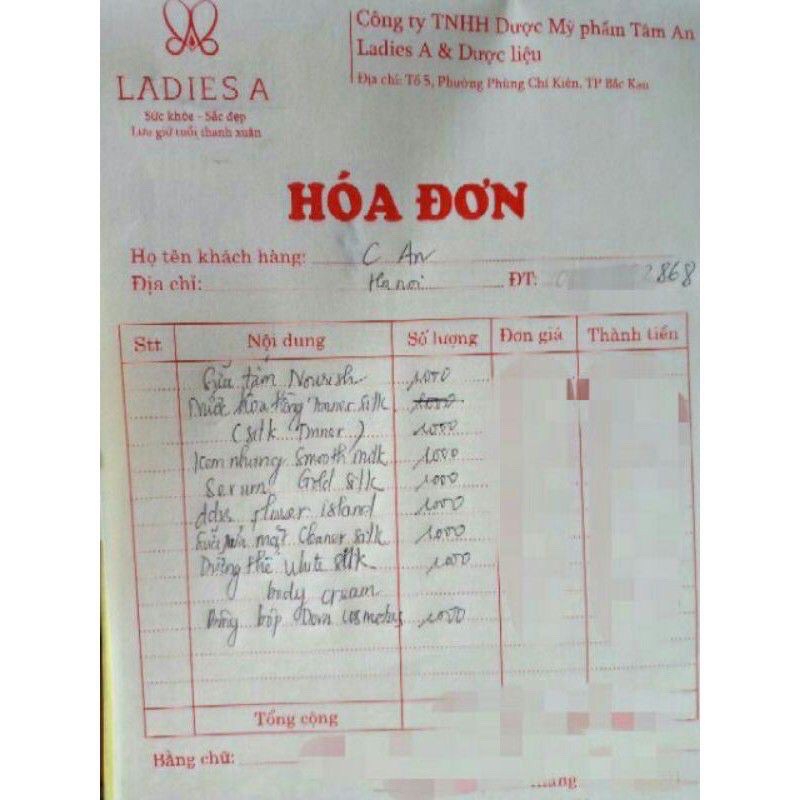 LADIES A
Sức khỏe - Sắc đẹp
Lưu giữ tuổi thanh xuân
Công ty TNHH Dược Mỹ phẩm Tâm An
Ladies A & Dược liệu
Địa chỉ: Tổ 5, Phường Phùng Chí Kiên, TP Bắc Kạn
HÓA ĐƠN
Họ tên khách hàng: C An
Địa chỉ: Hanoi ĐT: 2868
Stt Nội dung Số lượng Đơn giá Thành tiền
Sữa tắm Nourish 1000
Nước hoa hồng silk 1000
(silk ) 1000
Kem nhung Smooth milk 1000
Serum Gold silk 1000
flower island 1000
rửa mặt Cleaner silk 1000
Dưỡng thể White silk 1000
body cream
Bông 1000
Tổng cộng
Bằng chữ: